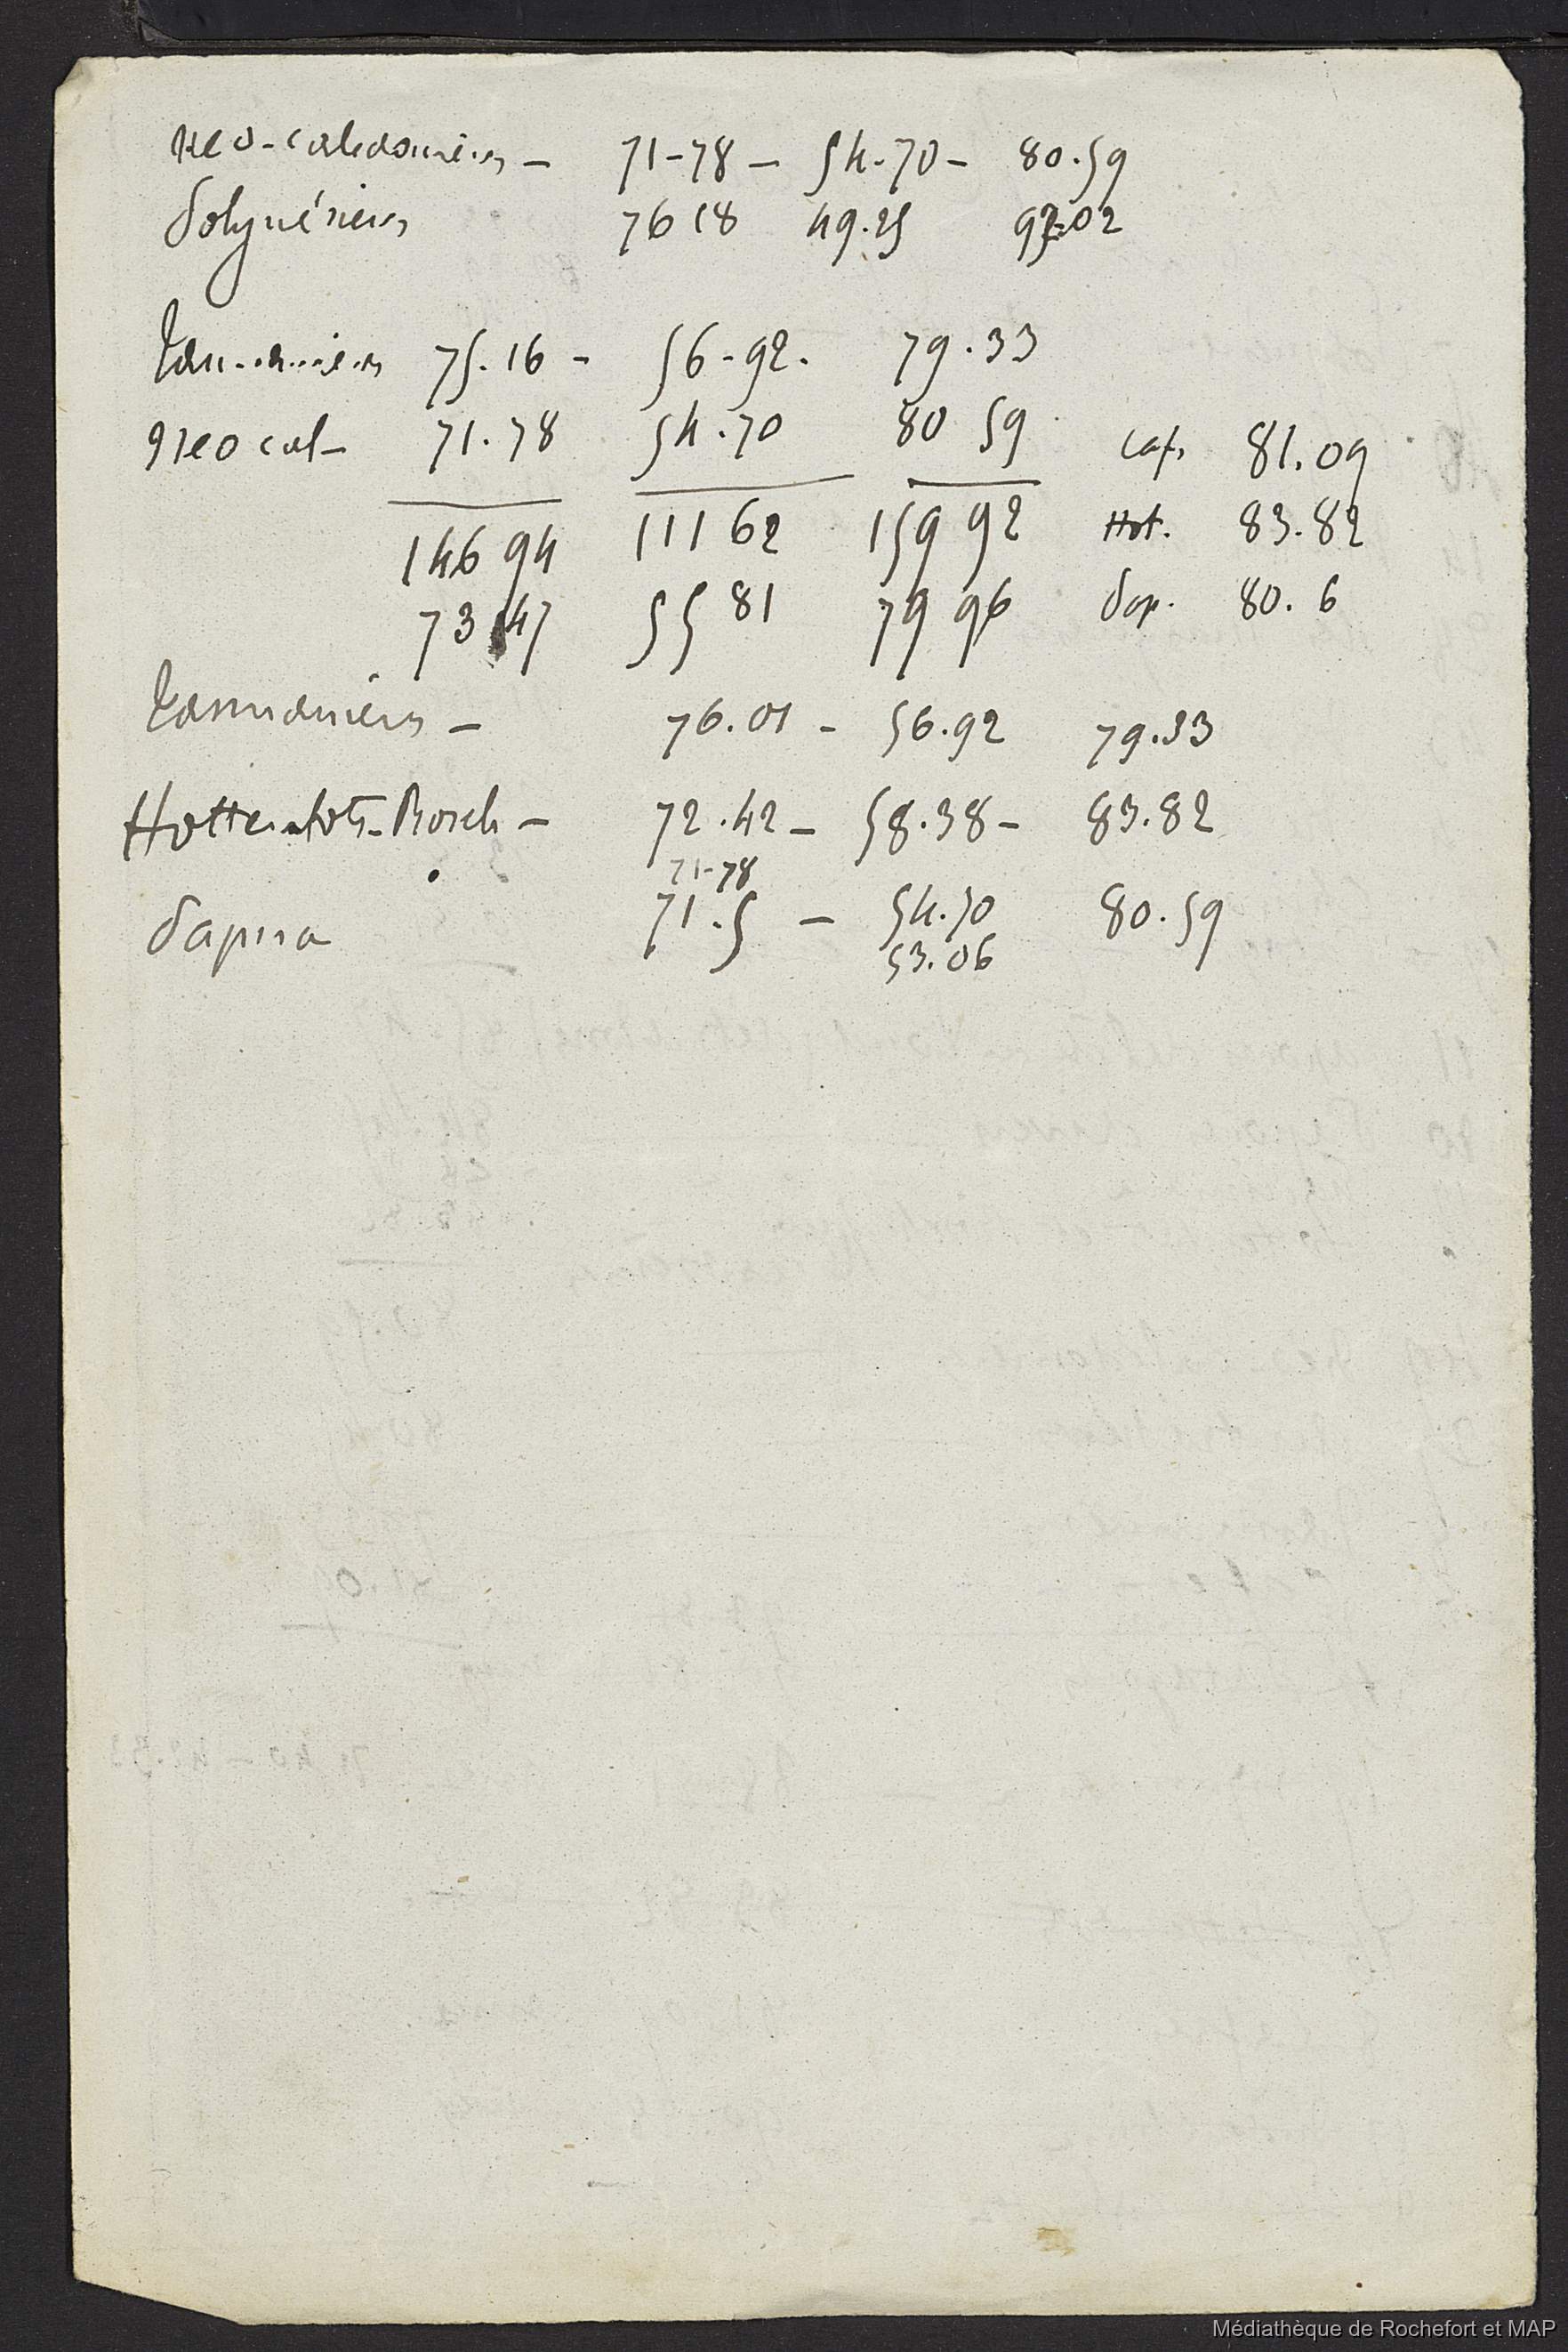 Neo-Caledoniens – 71-78 – 54-70 – 80.59
Polynésiens 76 18 49.25 92.02
Tasmaniens 75.16 - 56-92. 79.33
Neo cal- 71.78 54.70 80 59
Caf. 81.09
146 94 111 62 159 92 Hot. 83.82
73 47 55 81 79 96 Pap. 80. 6
Tasmaniens – 76.01 - 56.92 79.33
Hottentots-Bosch – 72.42 – 58.38 – 83.82
71-78
Papua 71.5 – 54.70 80.59
53.06
Médiathèque de Rochefort et MAP